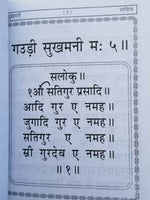 सुखमनी (१) साहिब
गउड़ी सुखमनी मः ५॥
सलोकु॥
१ओं सतिगुर प्रसादि॥
आदि गुर ए नमह॥
जुगादि गुर ए नमह॥
सतिगुर ए नमह॥
स्री गुरदेव ए नमह॥
॥१॥